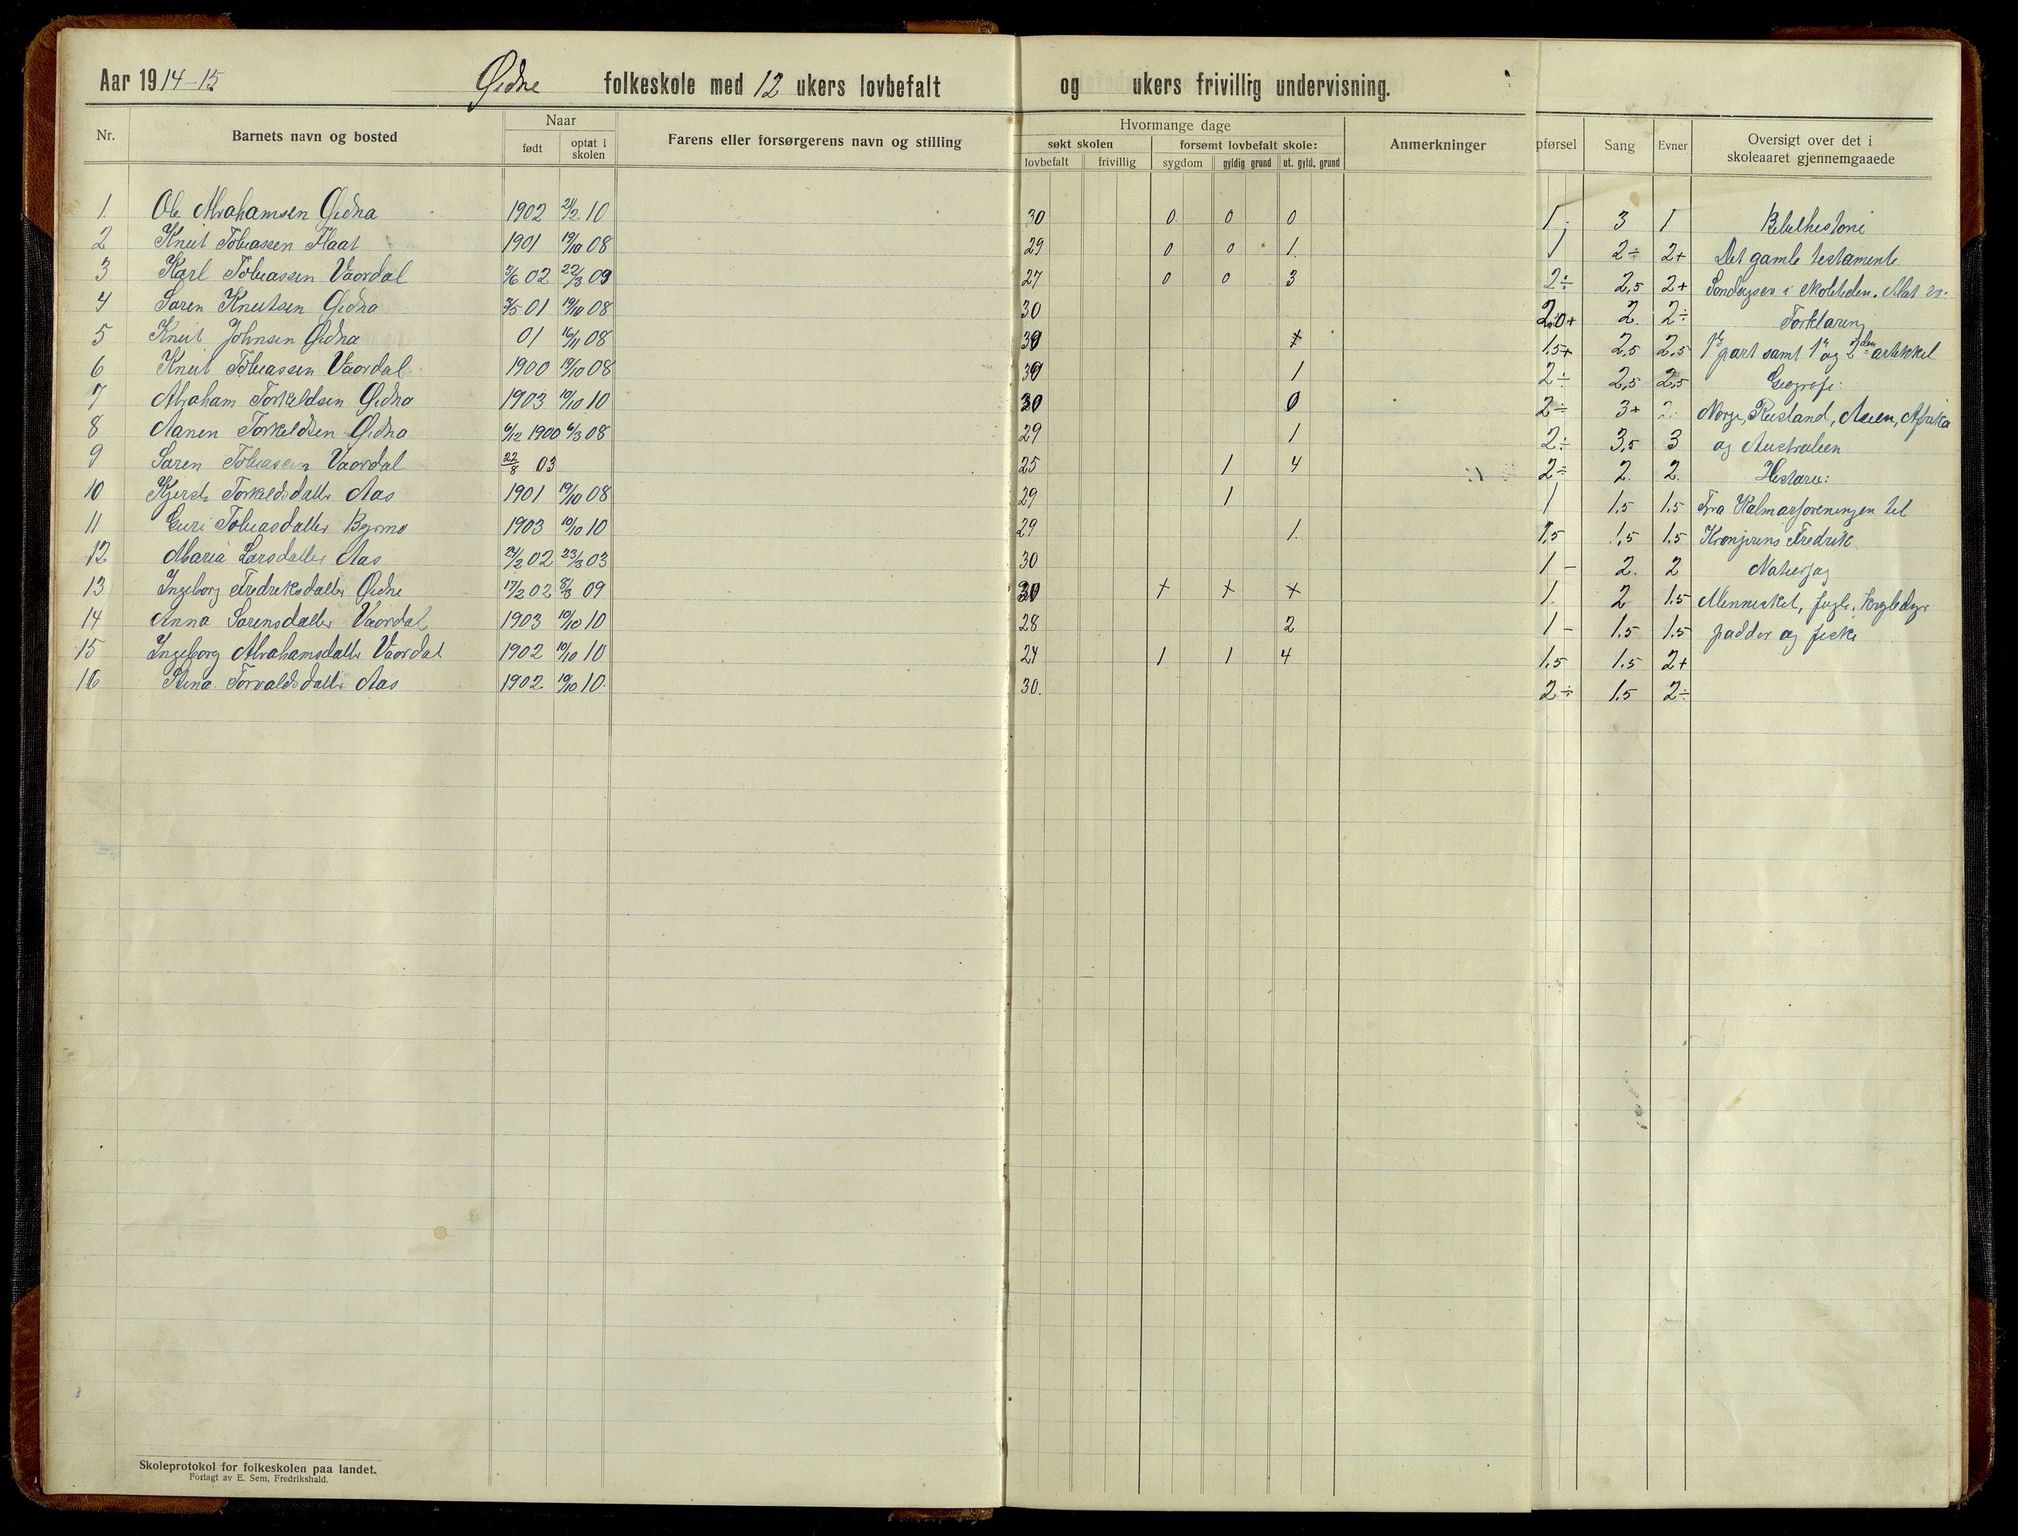 Aar 1914-15 Øidne folkeskole med 12 ukers lovbefalt og ukers frivillig undervisning.
Nr. Barnets navn og bosted Naar født optat i skolen Farens eller forsørgerens navn og stilling
Hvormange dage søkt skolen lovbefalt frivillig forsømt lovbefalt skole: sygdom gyldig grund ut. gyld. grund Anmerkninger
pførsel Sang Evner Oversigt over det i skoleaaret gjennemgaaede
1. Ole Abrahamsen Øidna 1902 21/2 10 30 0 0 0 1 3 1 Bibelhistorie
2 Knut Tobiassen Flaat 1901 19/10 08 29 0 0 1. 1 2÷ 2+ Det gamle testamente
3 Karl Tobiassen Vaordal 7/6 02 22/3 09 27 0 0 3 2÷ 2,5 2+
4 Søren Knutsen Øidna 3/5 01 19/10 08 30 2 2÷ Forklaring
5 Knut Johnsen Øidna 01 16/11 08 1.5+ 2,5 2,5 part samt og artikkel
6 Knut Tobiassen Vaordal 1900 19/10 08 1 2÷ 2,5 2,5 Geografi:
7 Abraham Torkeldsen Øidna 1903 10/10 10 30 0 2÷ 3+ 2 Norge, Rusland, Asien, Afrika
8 Aanen Torkeldsen Øidna 6/12 1900 6/3 08 29 1 2÷ 3,5 3 og Australien
9 Søren Tobiassen Vaordal 22/8 03 25 1 4 2÷ 2. 2. Historie:
10 Kjersti Torkeldsdatter Aas 1901 19/10 08 29 1 1 1.5 1.5 Fra Kalmarforeningen til
11 Guri Tobiasdatter Bjørmo 1903 10/10 10 29 1. 1,5 1,5 1.5 Kronprins Fredrik.
12 Maria Larsdatter Aas 24/2 02 23/3 03 30 1 - 2. 2 Naturfag
13 Ingeborg Fredriksdatter Øidne 17/2 02 8/3 09 30 + + + 1. 2 1.5 Mennesket, fugle, krybdyr
14 Anna Sørensdatter Vaordal 1903 10/10 10 28 2 1 - 1.5 1.5 padder og fiske
15 Ingeborg Abrahamsdatter Vaordal 1902 10/10 10 24 1 1 4 1.5 1.5 2+
16 Stina Torvaldsdatter Aas 1902 10/10 10. 30. 2÷ 1.5 2÷
Skoleprotokol for folkeskolen paa landet.
Forlagt av E. Sem, Fredrikshald.